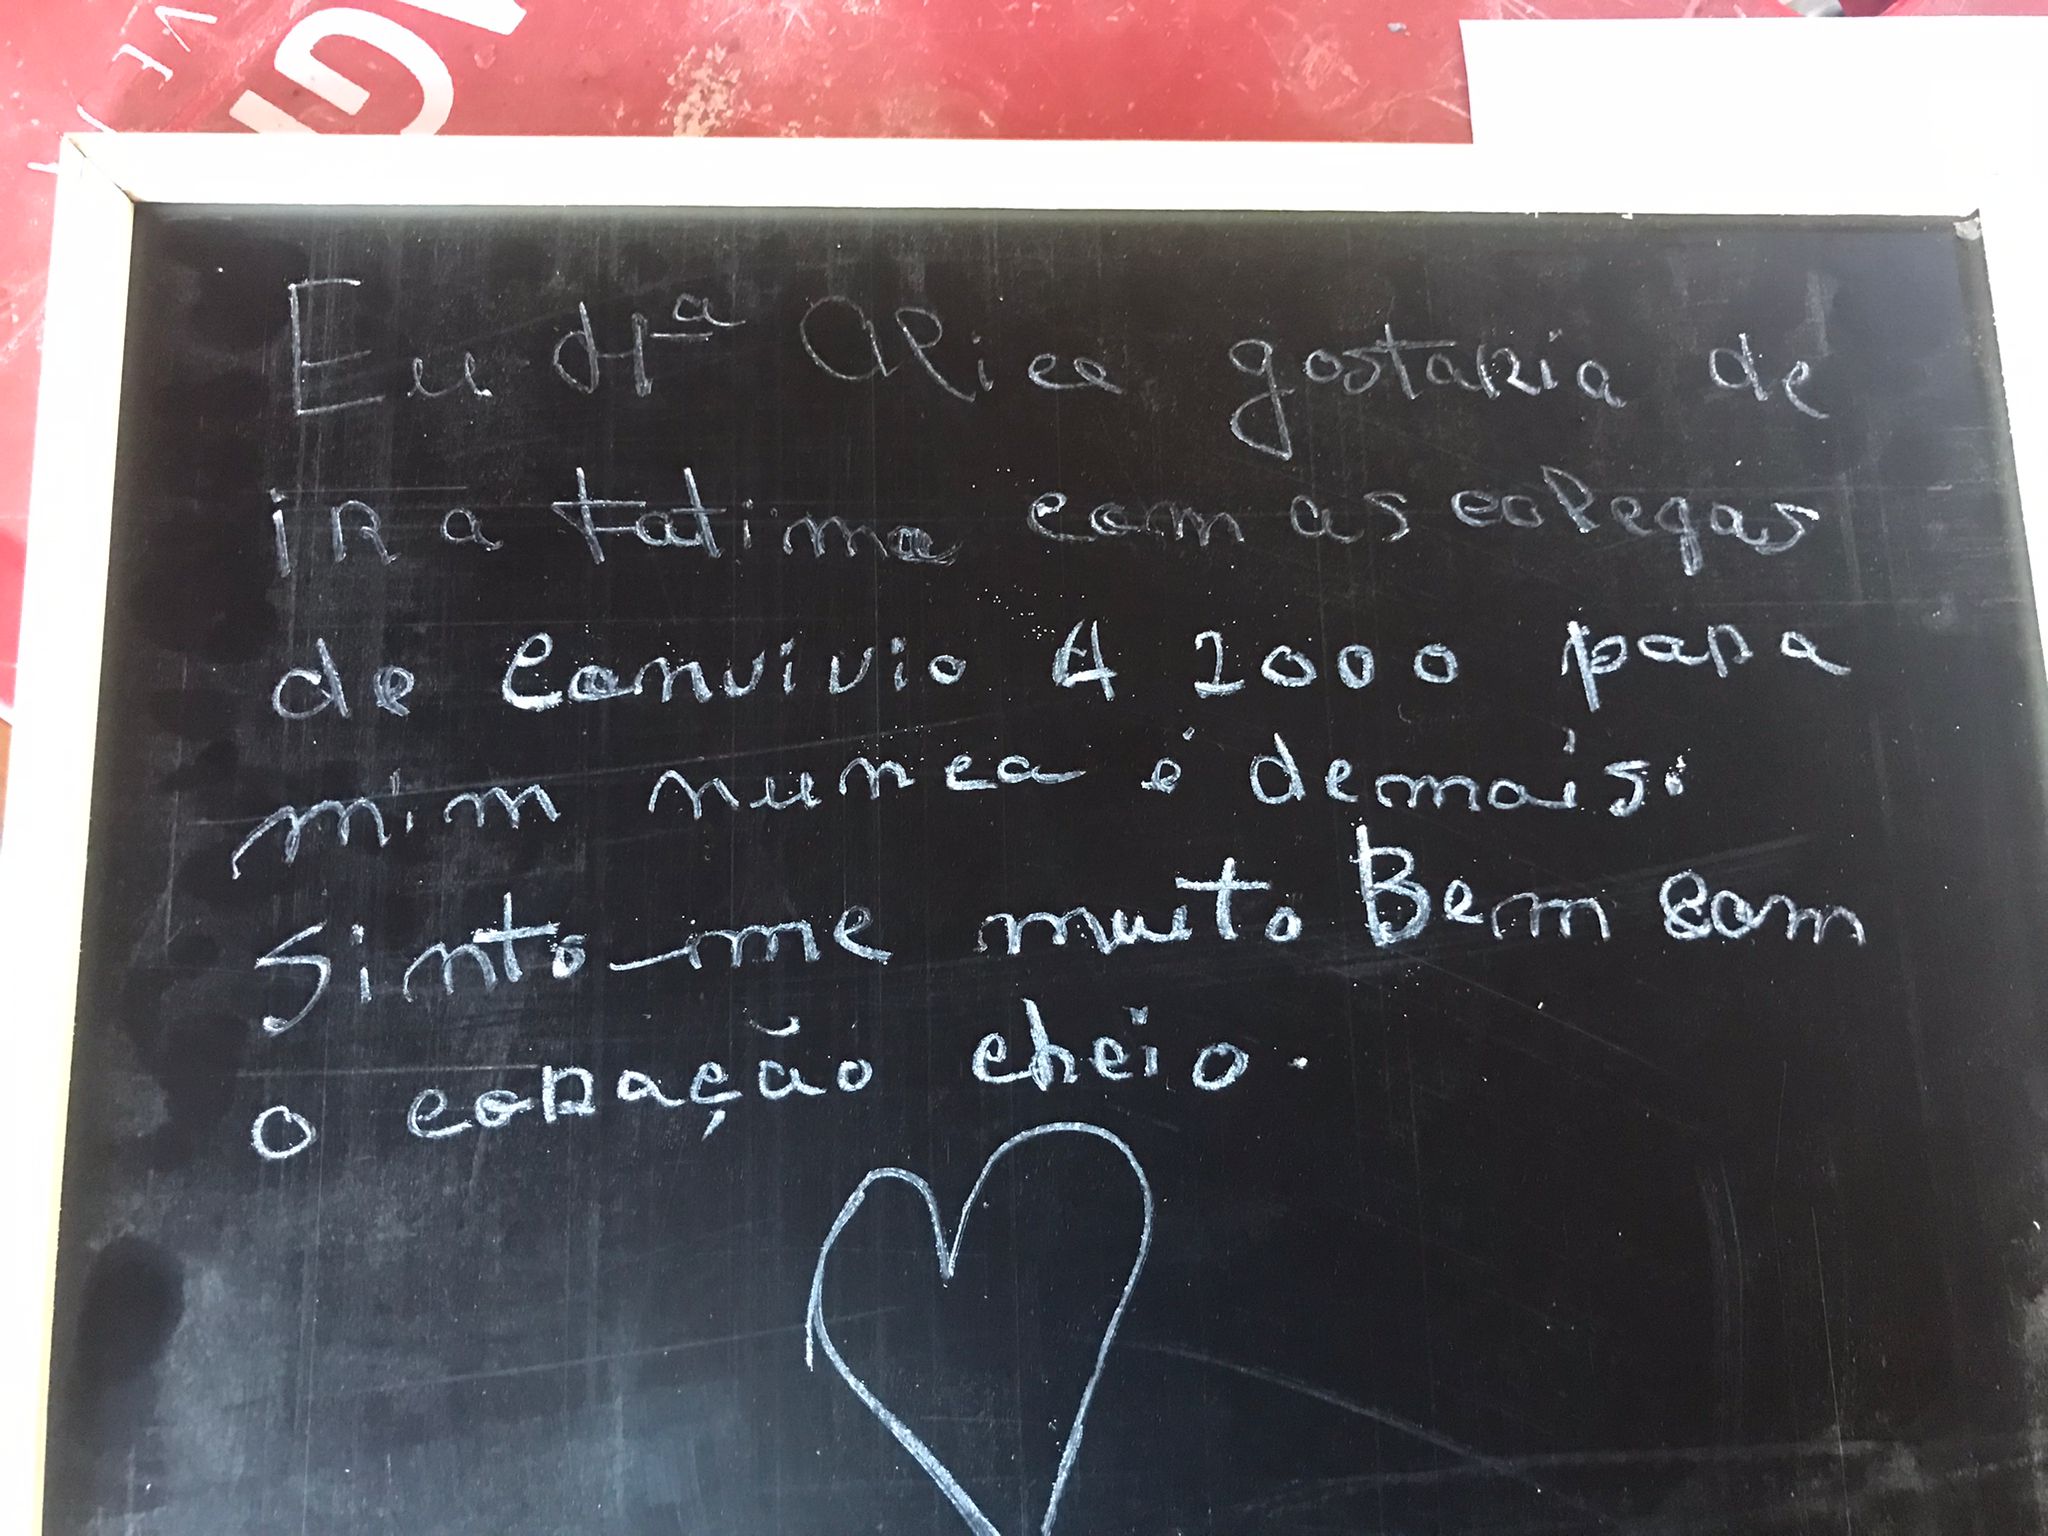 Eu Mª Alice gostaria de
ir a Fatima com as colegas
de convivio A 2000 para
mim nunca é demais.
Sinto-me muito Bem com
o coração cheio.